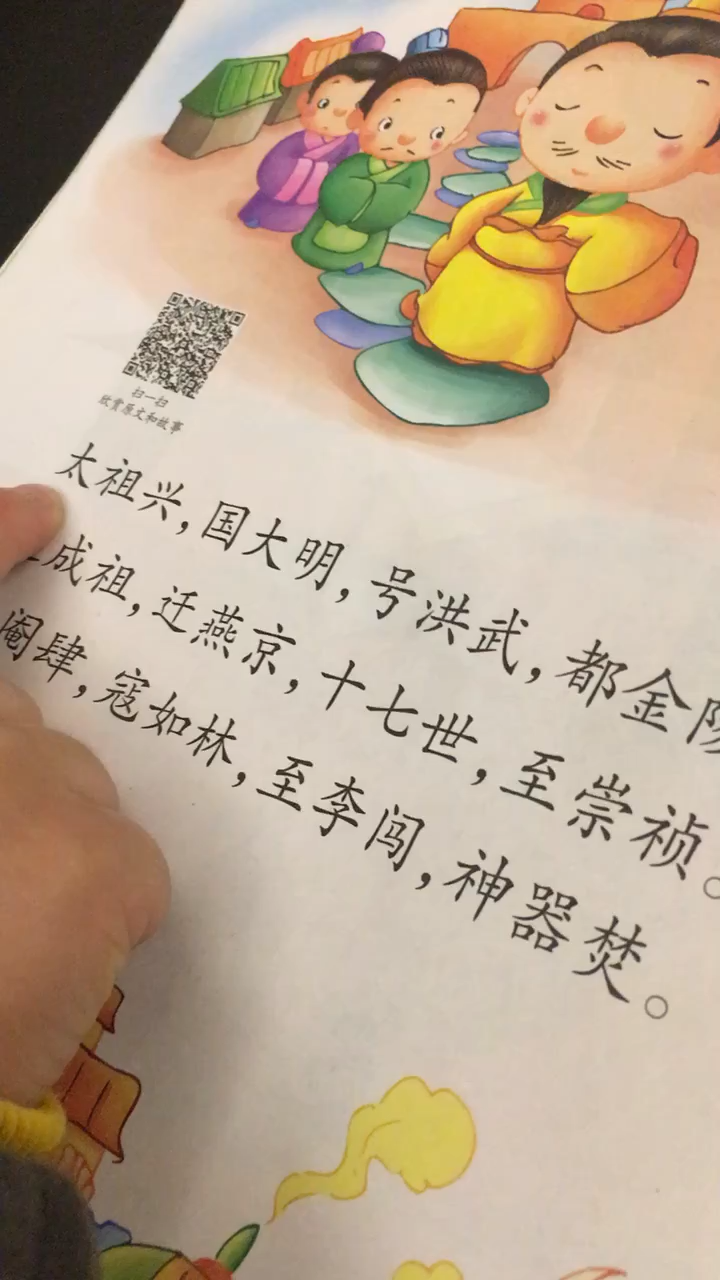 扫一扫
欣赏原文和故事
太祖兴，国大明，号洪武，都金陵
成祖，迁燕京，十七世，至崇祯。
阉肆，寇如林，至李闯，神器焚。